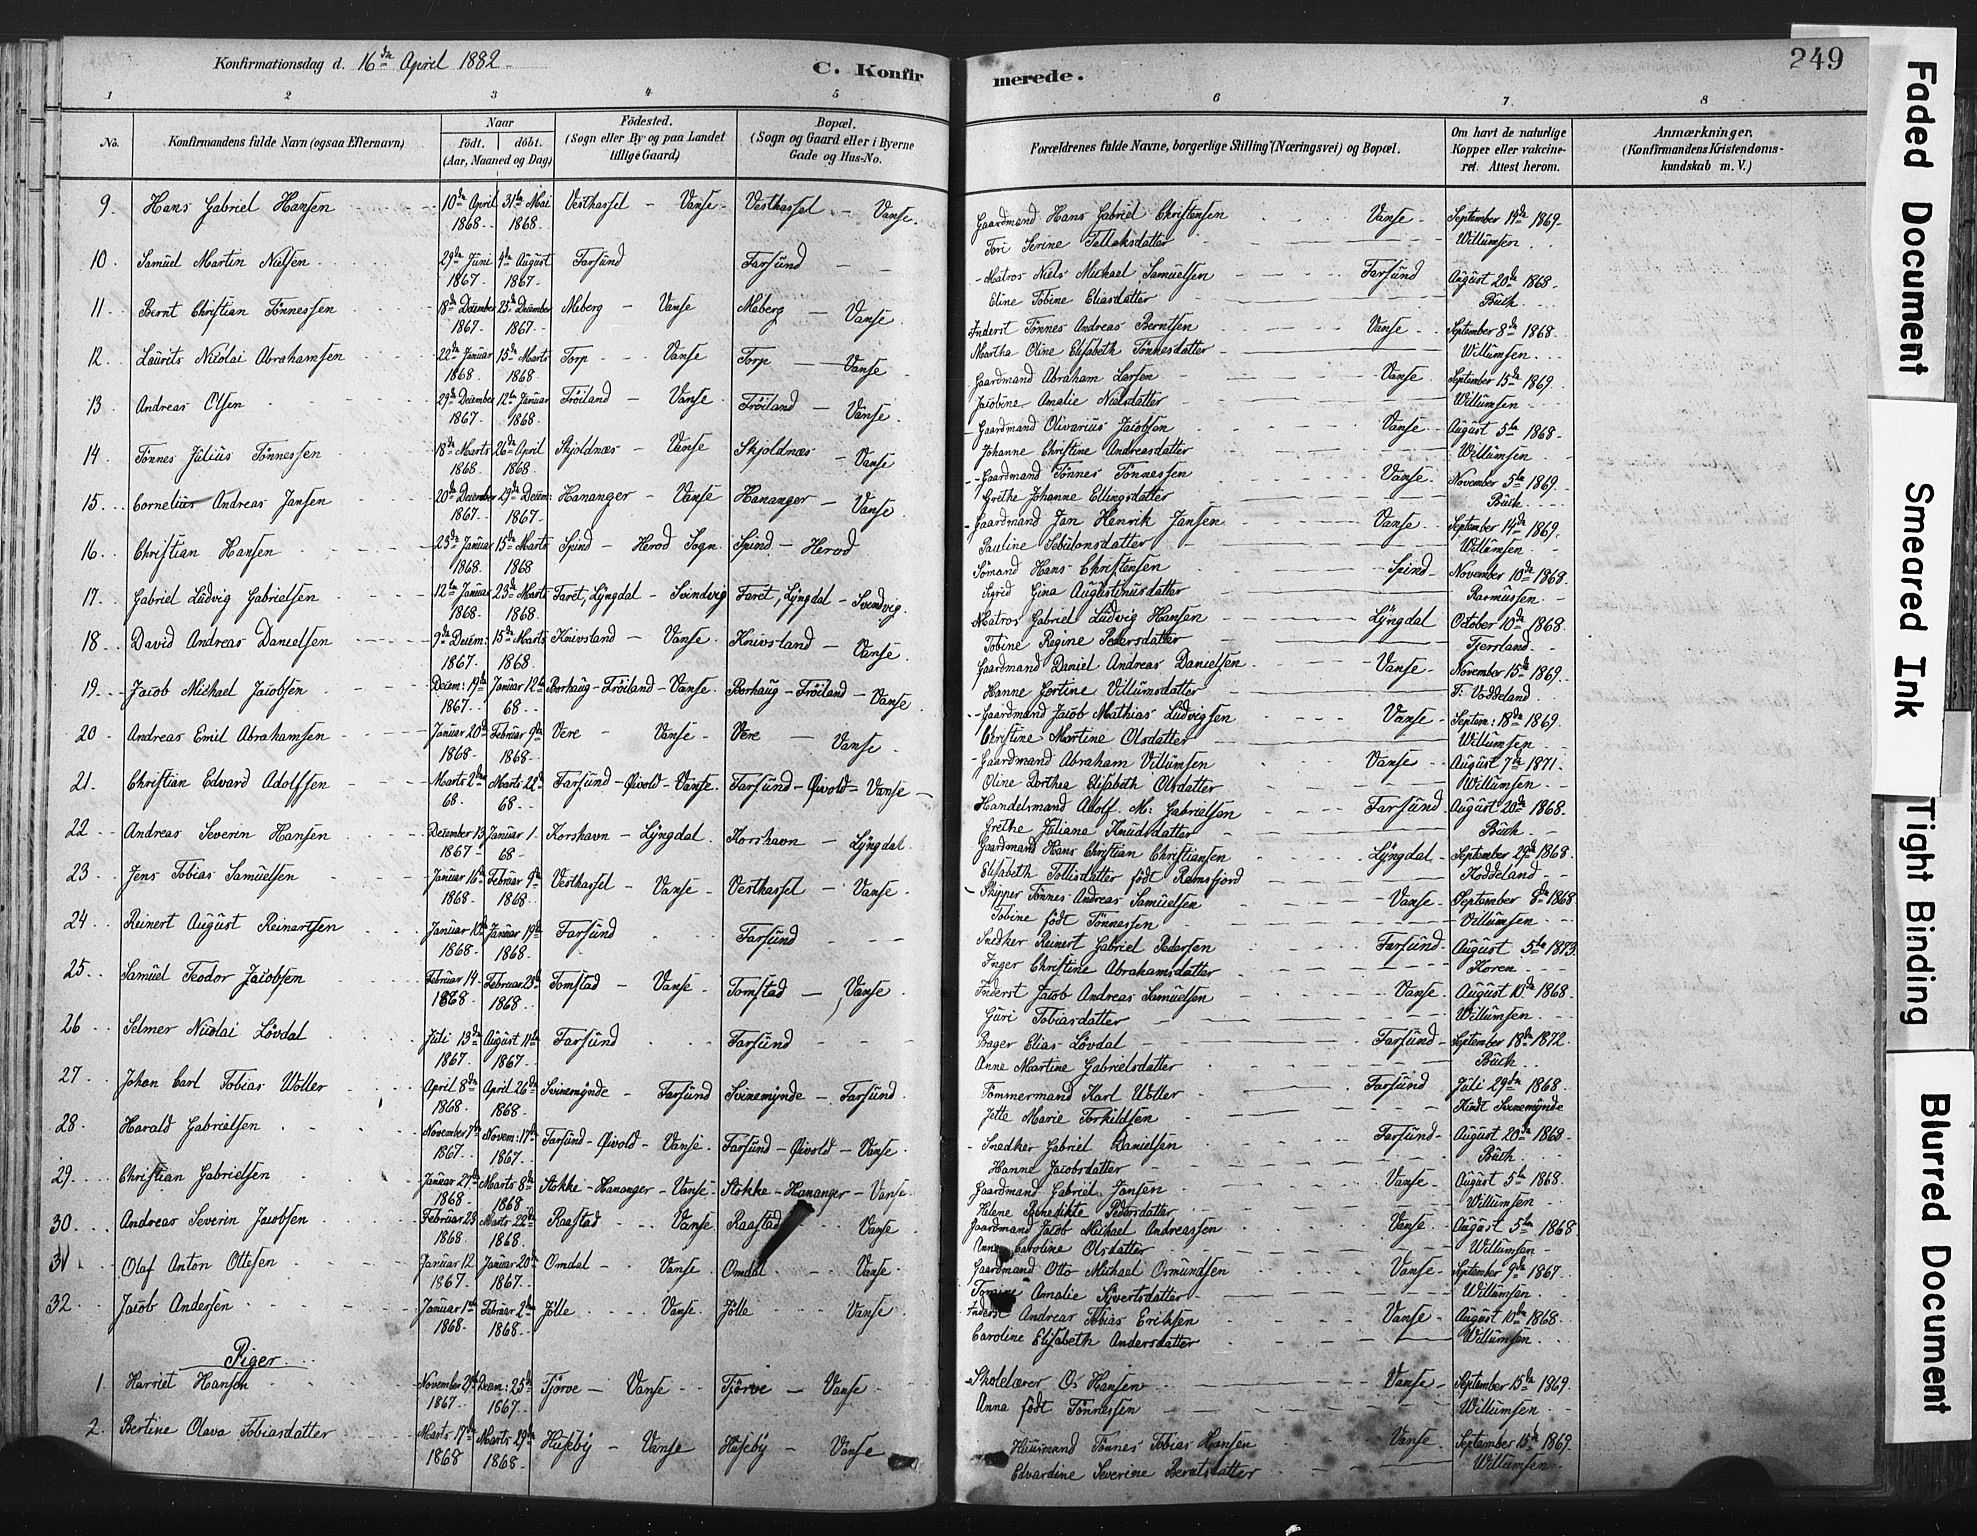 Konfirmationsdag d. 16de April 1882
C. Konfir
merede.
249
1 2 3 4 5 6 7 8
No.
Konfirmandens fulde Navn (ogsaa Efternavn)
Naar
født. døbt.
(Aar, Maaned og Dag)
Fødested.
(Sogn eller By og paa Landet
tillige Gaard)
Bopæl.
(Sogn og Gaard eller i Byerne
Gade og Hus-No.
Forældrenes fulde Navne, borgerlige Stilling (Næringsvei) og Bopæl.
Om havt de naturlige
Kopper eller vakcine-
ret. Attest herom.
Anmærkninger.
(Konfirmandens Kristendoms-
kundskab m. V.)
9. Hans Gabriel Hansen 10de April 31te Mai Vesthassel - Vanse Vesthassel - Vanse. Gaardmand Hans Gabriel Christensen Vanse September 14de 1869.
1868 1868. Tori Serine Tallaksdatter Willumsen
10 Samuel Martin Nielsen 29de Juni 4de August Farsund Farsund Matros Niels Michael Samuelsen Farsund August 20de 1868.
1867. 1867. Eline Tobine Eliasdatter Buch
11 Bernt Christian Tønnessen 18de December 25de December Meberg - Vanse Meberg - Vanse. Inderst Tønnes Andreas Berntsen Vanse September 8de 1868.
1867. 1867. Martha Oline Elisabeth Tønnesdatter Willumsen
12. Laurits Nicolai Abrahamsen 22de Januar 15de Marts Torp - Vanse Torp - Vanse Gaardmand Abraham Larsen Vanse September 15de 1869.
1868. 1868 Jacobine Amalie Nielsdatter Willumsen
13 Andreas Olsen 29de December 12te Januar Frøiland - Vanse Frøiland - Vanse. Gaardmand Olivarius Jacobsen Vanse August 5te 1868.
1867. 1868. Johanne Christine Andreasdatter Willumsen
14 Tønnes Julius Tønnessen 18de Marts 26de April Skjoldnæs - Vanse Skjoldnæs - Vanse Gaardmand Tønnes Tønnessen Vanse November 5te 1869.
1868 1868. Grethe Johanne Ellingsdatter Buch
15 Cornelius Andreas Jansen 20de December 29de Decem: Hananger - Vanse Hananger - Vanse. Gaardmand Jan Henrik Jansen Vanse September 14de 1869.
1867. 1867. Pauline Sebulonsdatter Willumsen
16 Christian Hansen 25de Januar 15de Marts Spind - Herod Sogn. Spind - Herod Sømand Hans Christensen Spind November 10de 1868.
1868. 1868 Sigrid Gina Augustinusdatter Rasmussen
17. Gabriel Ludvig Gabrielsen 12te Januar 23de Marts Faret, Lyngdal - Svindvig Faret, Lyngdal - Svindvig. Matros Gabriel Ludvig Hansen Lyngdal October 10de 1868.
1868. 1868. Tobine Regine Pedersdatter Tjersland
18 David Andreas Danielsen 9de Decem: 15de Marts Knivsland - Vanse. Knivsland - Vanse. Gaardmand Daniel Andreas Danielsen Vanse November 15de 1869.
1867. 1868. Hanne Gortine Villumsdatter T: Voddeland
19. Jacob Michael Jacobsen Decem: 19de Januar 12te Borhaug - Frøiland - Vanse. Borhaug - Frøiland - Vanse Gaardmand Jacob Mathias Ludvigsen Vanse Septem: 18de 1869.
1867. 68. Christine Martine Olsdatter Willumsen
20 Andreas Emil Abrahamsen Januar 20de Februar 9de Vere - Vanse Vere - Vanse. Gaardmand Abraham Villumsen Vanse August 7de 1871.
1868 1868. Oline Dorthea Elisabeth Olsdatter Willumsen
21. Christian Edvard Adolfsen Marts 2den Marts 22de Farsund - Øivold - Vanse. Farsund - Øivold - Vanse Handelsmand Adolf M: Gabrielsen Farsund August 20de 1868.
68. 68. Grethe Juliane Knudsdatter Buch
22 Andreas Severin Hansen December 13 Januar 1. Korshavn - Lyngdal Korshavn - Lyngdal. Gaardmand Hans Christian Christiansen Lyngdal September 29de 1868.
1867 68. Elisabeth Tollisdatter født Ramsfjord Hoddeland
23 Jens Tobias Samuelsen Januar 16de Februar 9de Vesthassel - Vanse. Vesthassel - Vanse Skipper Tønnes Andreas Samuelsen Vanse September 8de 1868
1868. 1868. Tobine født Tønnessen Villumsen
24 Reinert August Reinartsen Januar 10de Januar 19de Farsund Farsund Snedker Reinert Gabriel Pedersen Farsund August 5te 1873.
1868. 1868. Inger Christine Abrahamsdatter Horen
25 Samuel Teodor Jacobsen Februar 14 Februar 23de Tomstad - Vanse Tomstad - Vanse Inderst Jacob Andreas Samuelsen Vanse August 10de 1868.
1868 1868. Guri Tobiasdatter Willumsen
26 Selmer Nicolai Løvdal Juli 13de August 11te Farsund Farsund Bager Elias Løvdal Farsund September 18de 1872.
1867. 1867. Anne Martine Gabrielsdatter Buch
27 Johan Carl Tobias Woller April 8de April 26de Svinemynde - Farsund Svinemynde - Farsund. Tømmermand Karl Woller Farsund Juli 29de 1868.
1868. 1868. Jette Marie Torkildsen Kindt Svinemynde
28 Harald Gabrielsen November 7de Novem: 17de Farsund - Øivold - Vanse. Farsund - Øivold - Vanse Snedker Gabriel Danielsen Farsund August 20de 1868
1867. 1867. Hanne Jacobsdatter Buch
29. Christian Gabrielsen Januar 27de Marts 8de Stokke - Hananger - Vanse. Stokke - Hananger - Vanse Gaardmand Gabriel Jansen Vanse August 5te 1868.
1868. 1868 Helene Benedikte Pedersdatter Willumsen
30. Andreas Severin Jacobsen Februar 23 Marts 22de Raastad - Vanse Raastad Vanse Gaardmand Jacob Michael Andreassen Vanse August 5te 1868
1868. 1868. Anne Caroline Olsdatter Willumsen
31 Olaf Anton Ottesen Januar 12 Januar 20de Omdal - Vanse Omdal Vanse Gaardmand Otto Michael Osmundsen Vanse September 9de 1867.
1867. 1867. Amalie Sivertsdatter Willumsen
32. Jacob Andersen Januar 1ste Februar 2den Jølle Vanse. Jølle Vanse Inderst Andreas Tobias Eriksen Vanse August 10de 1868.
1868. 1868. Caroline Elisabeth Andersdatter Willumsen
Piger.
1. Harriet Hansen November 29de Decem: 25de Tjørve - Vanse Tjørve - Vanse Skolelærer O: Hansen Vanse September 15de 1869.
1867. 1867. Anna født Tønnessen Willumsen
2. Bertine Olava Tobiasdatter Marts 17de Marts 29de Huseby - Vanse Huseby - Vanse Huusmand Tønnes Tobias Hansen Vanse September 15de 1869.
1868 1868. Edvardine Severine Berntsdatter Willumsen
Faded Document
Smeared Ink
Tight Binding
Blurred Document